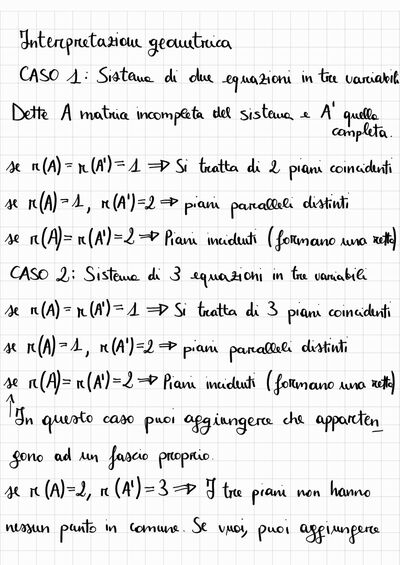 Interpretazione geometrica
CASO 1: Sistema di due equazioni in tre variabili
Dette A matrice incompleta del sistema e A' quella
completa.
se r(A) = r(A') = 1 ⇒ Si tratta di 2 piani coincidenti
se r(A) = 1, r(A') = 2 ⇒ piani paralleli distinti
se r(A) = r(A') = 2 ⇒ Piani incidenti (formano una retta)
CASO 2: Sistema di 3 equazioni in tre variabili
se r(A) = r(A') = 1 ⇒ Si tratta di 3 piani coincidenti
se r(A) = 1, r(A') = 2 ⇒ piani paralleli distinti
se r(A) = r(A') = 2 ⇒ Piani incidenti (formano una retta)
↑ In questo caso puoi aggiungere che apparten
gono ad un fascio proprio.
se r(A) = 2, r(A') = 3 ⇒ I tre piani non hanno
nessun punto in comune. Se vuoi, puoi aggiungere